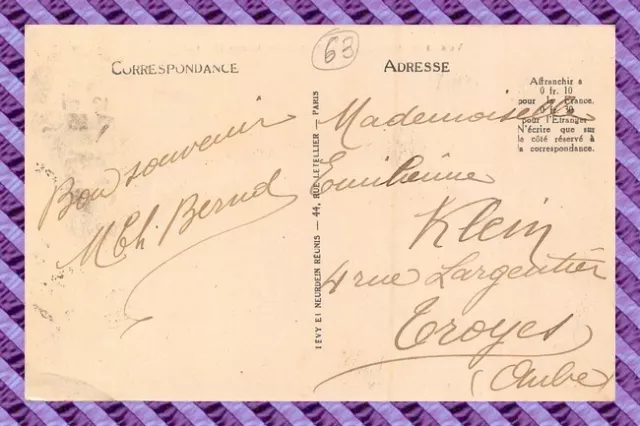 63
CORRESPONDANCE
ADRESSE
Affranchir a
0 fr. 10
pour la France.
0 fr. 30
pour l'Etranger
N'écrire que sur
le côté réservé à
la correspondance.
Bon souvenir
Mademoiselle
Klein
4 rue Largentier
Troyes
(Aube)
LEVY ET NEURDEIN RÉUNIS — 44, RUE LETELLIER — PARIS